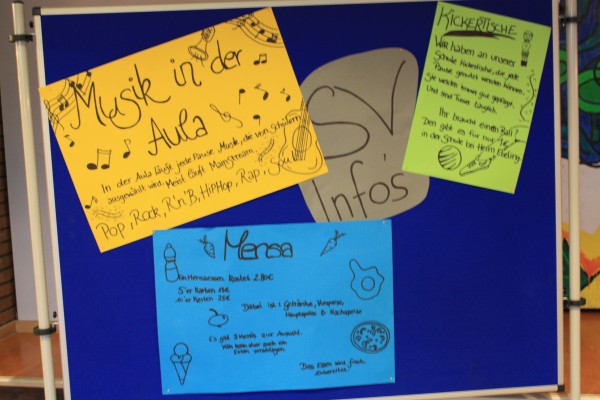 Musik in der
Aula
In der Aula läuft jede Pause Musik, die von Schülern
ausgewählt wird. Meist läuft Mainstream,
Pop, Rock, R'n'B, HipHop, Rap, Soul
SV
Info's
KICKERTISCHE
Wir haben an unserer
Schule Kickertische, die jede
Pause genutzt werden können.
Sie werden immer gut gepflegt,
und sind Tüglich.
Ihr braucht einen Ball?
Den gibt es für nur
in der Schule bei Herrn Ebeling
Mensa
Ein Mensaessen kostet 2.80€
5'er Karten 13€
10'er Karten 25€
Dabei ist 1 Getränke, Vorspeise,
Hauptspeise & Nachspeise
Es gibt 3 Menüs zur Auswahl.
Man kann aber auch ein
Essen vorschlagen.
Das Essen wird frisch
zubereitet.